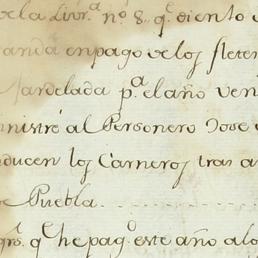 de la Livr.ª n.º 8. q.e siento
randa en pago de los fletes
Mardelada p.ª el año ven
ministré al Personero Jose
nducen los Carneros tras a
e Puebla.
gros. q.e he pag.º este año a lo